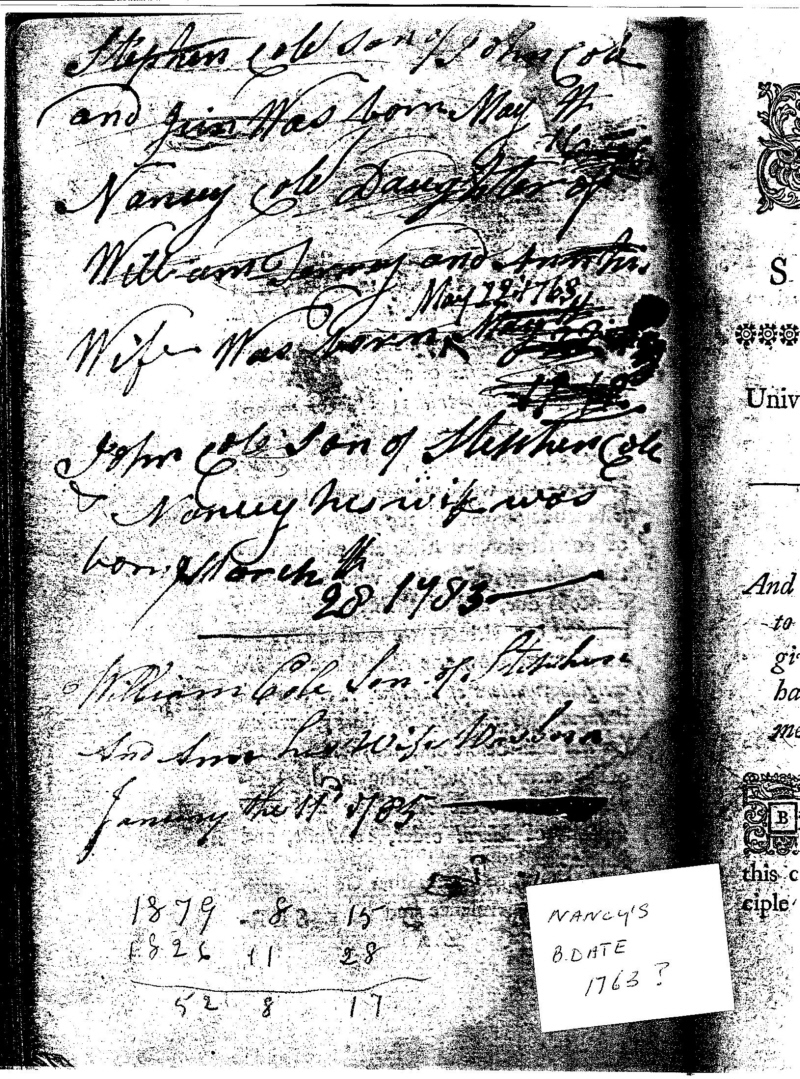 Stephen Cole Son of John Cole
and Jein Was born May
Nancy Cole Daughter of
William and Ann his
May 22d 1768
Wife Was born May
John Cole Son of Stephen Cole
& Nancy his wife was
born March th
28 1783
William Cole Son of Stephen
And Ann his Wife Was born
January the 11d 1785
1879 8 15
1826 11 28
52 8 17
NANCY'S
B. DATE
1763 ?
S
Univ
And
to
gi
ha
me
B
this c
ciple